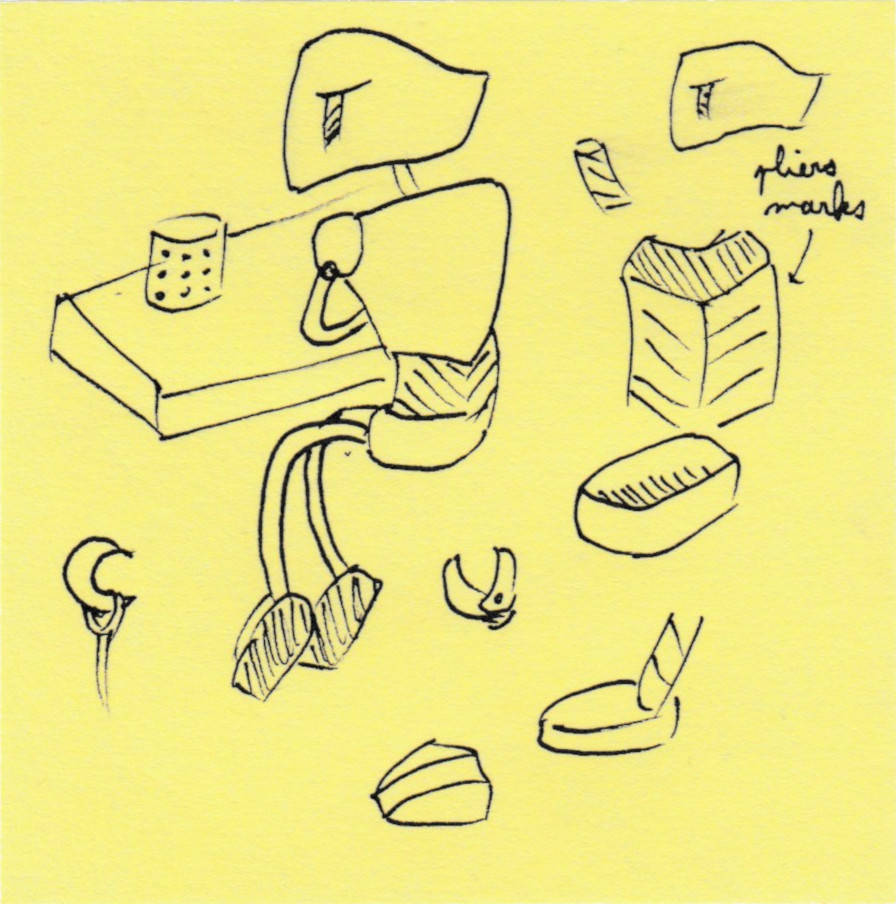 pliers
marks